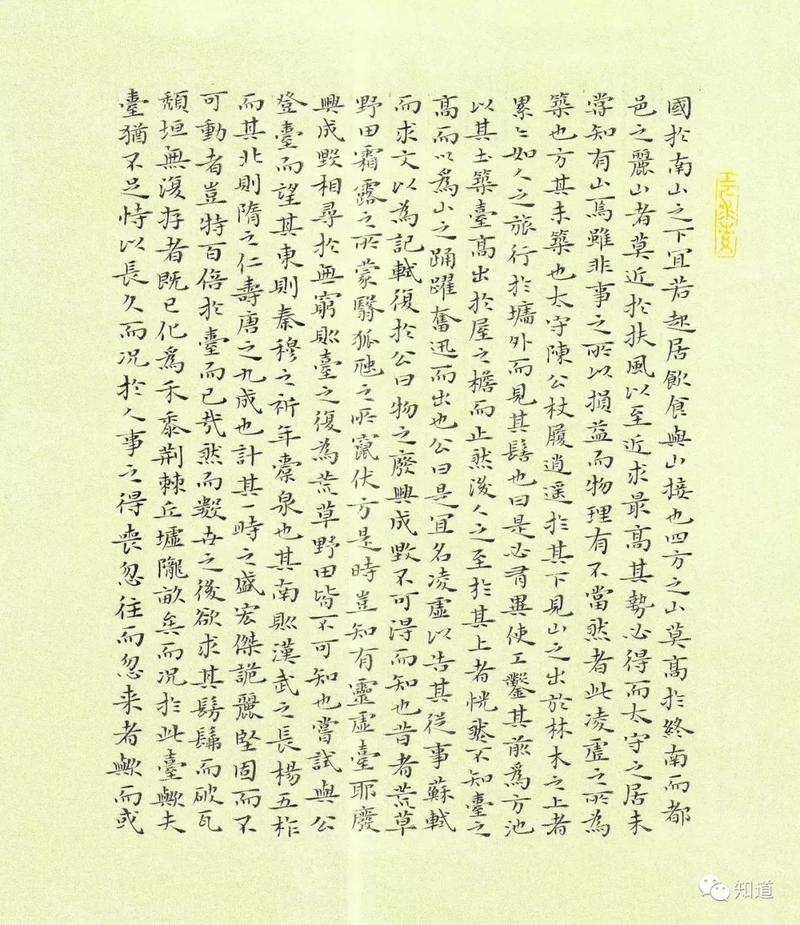 國於南山之下宜若起居飲食與山接也四方之山莫高於終南而都
邑之麗山者莫近於扶風以至近求最高其勢必得而太守之居未
嘗知有山焉雖非事之所以損益而物理有不當然者此凌虛之所為
築也方其未築也太守陳公杖履逍遥於其下見山之出於林木之上者
累〻如人之旅行於墻外而見其髻也曰是必有異使工鑿其前爲方池
以其土築臺高出於屋之檐而止然後人之至於其上者恍然不知臺之
高而以爲山之踊躍奮迅而出也公曰是宜名凌虛以告其從事蘇軾
而求文以為記軾復於公曰物之廢興成毀不可得而知也昔者荒草
野田霜露之所蒙翳狐虺之所竄伏方是時豈知有靈虛臺耶廢
興成毀相尋於無窮則臺之復為荒草野田皆不可知也嘗試與公
登臺而望其東則秦穆之祈年橐泉也其南則漢武之長楊五柞
而其北則隋之仁壽唐之九成也計其一時之盛宏傑詭麗堅固而不
可動者豈特百倍於臺而已哉然而數世之後欲求其髣髴而破瓦
頹垣無復存者既已化爲禾黍荆棘丘墟隴畝矣而況於此臺歟夫
臺猶不足恃以長久而况於人事之得喪忽往而忽来者歟而或
知道